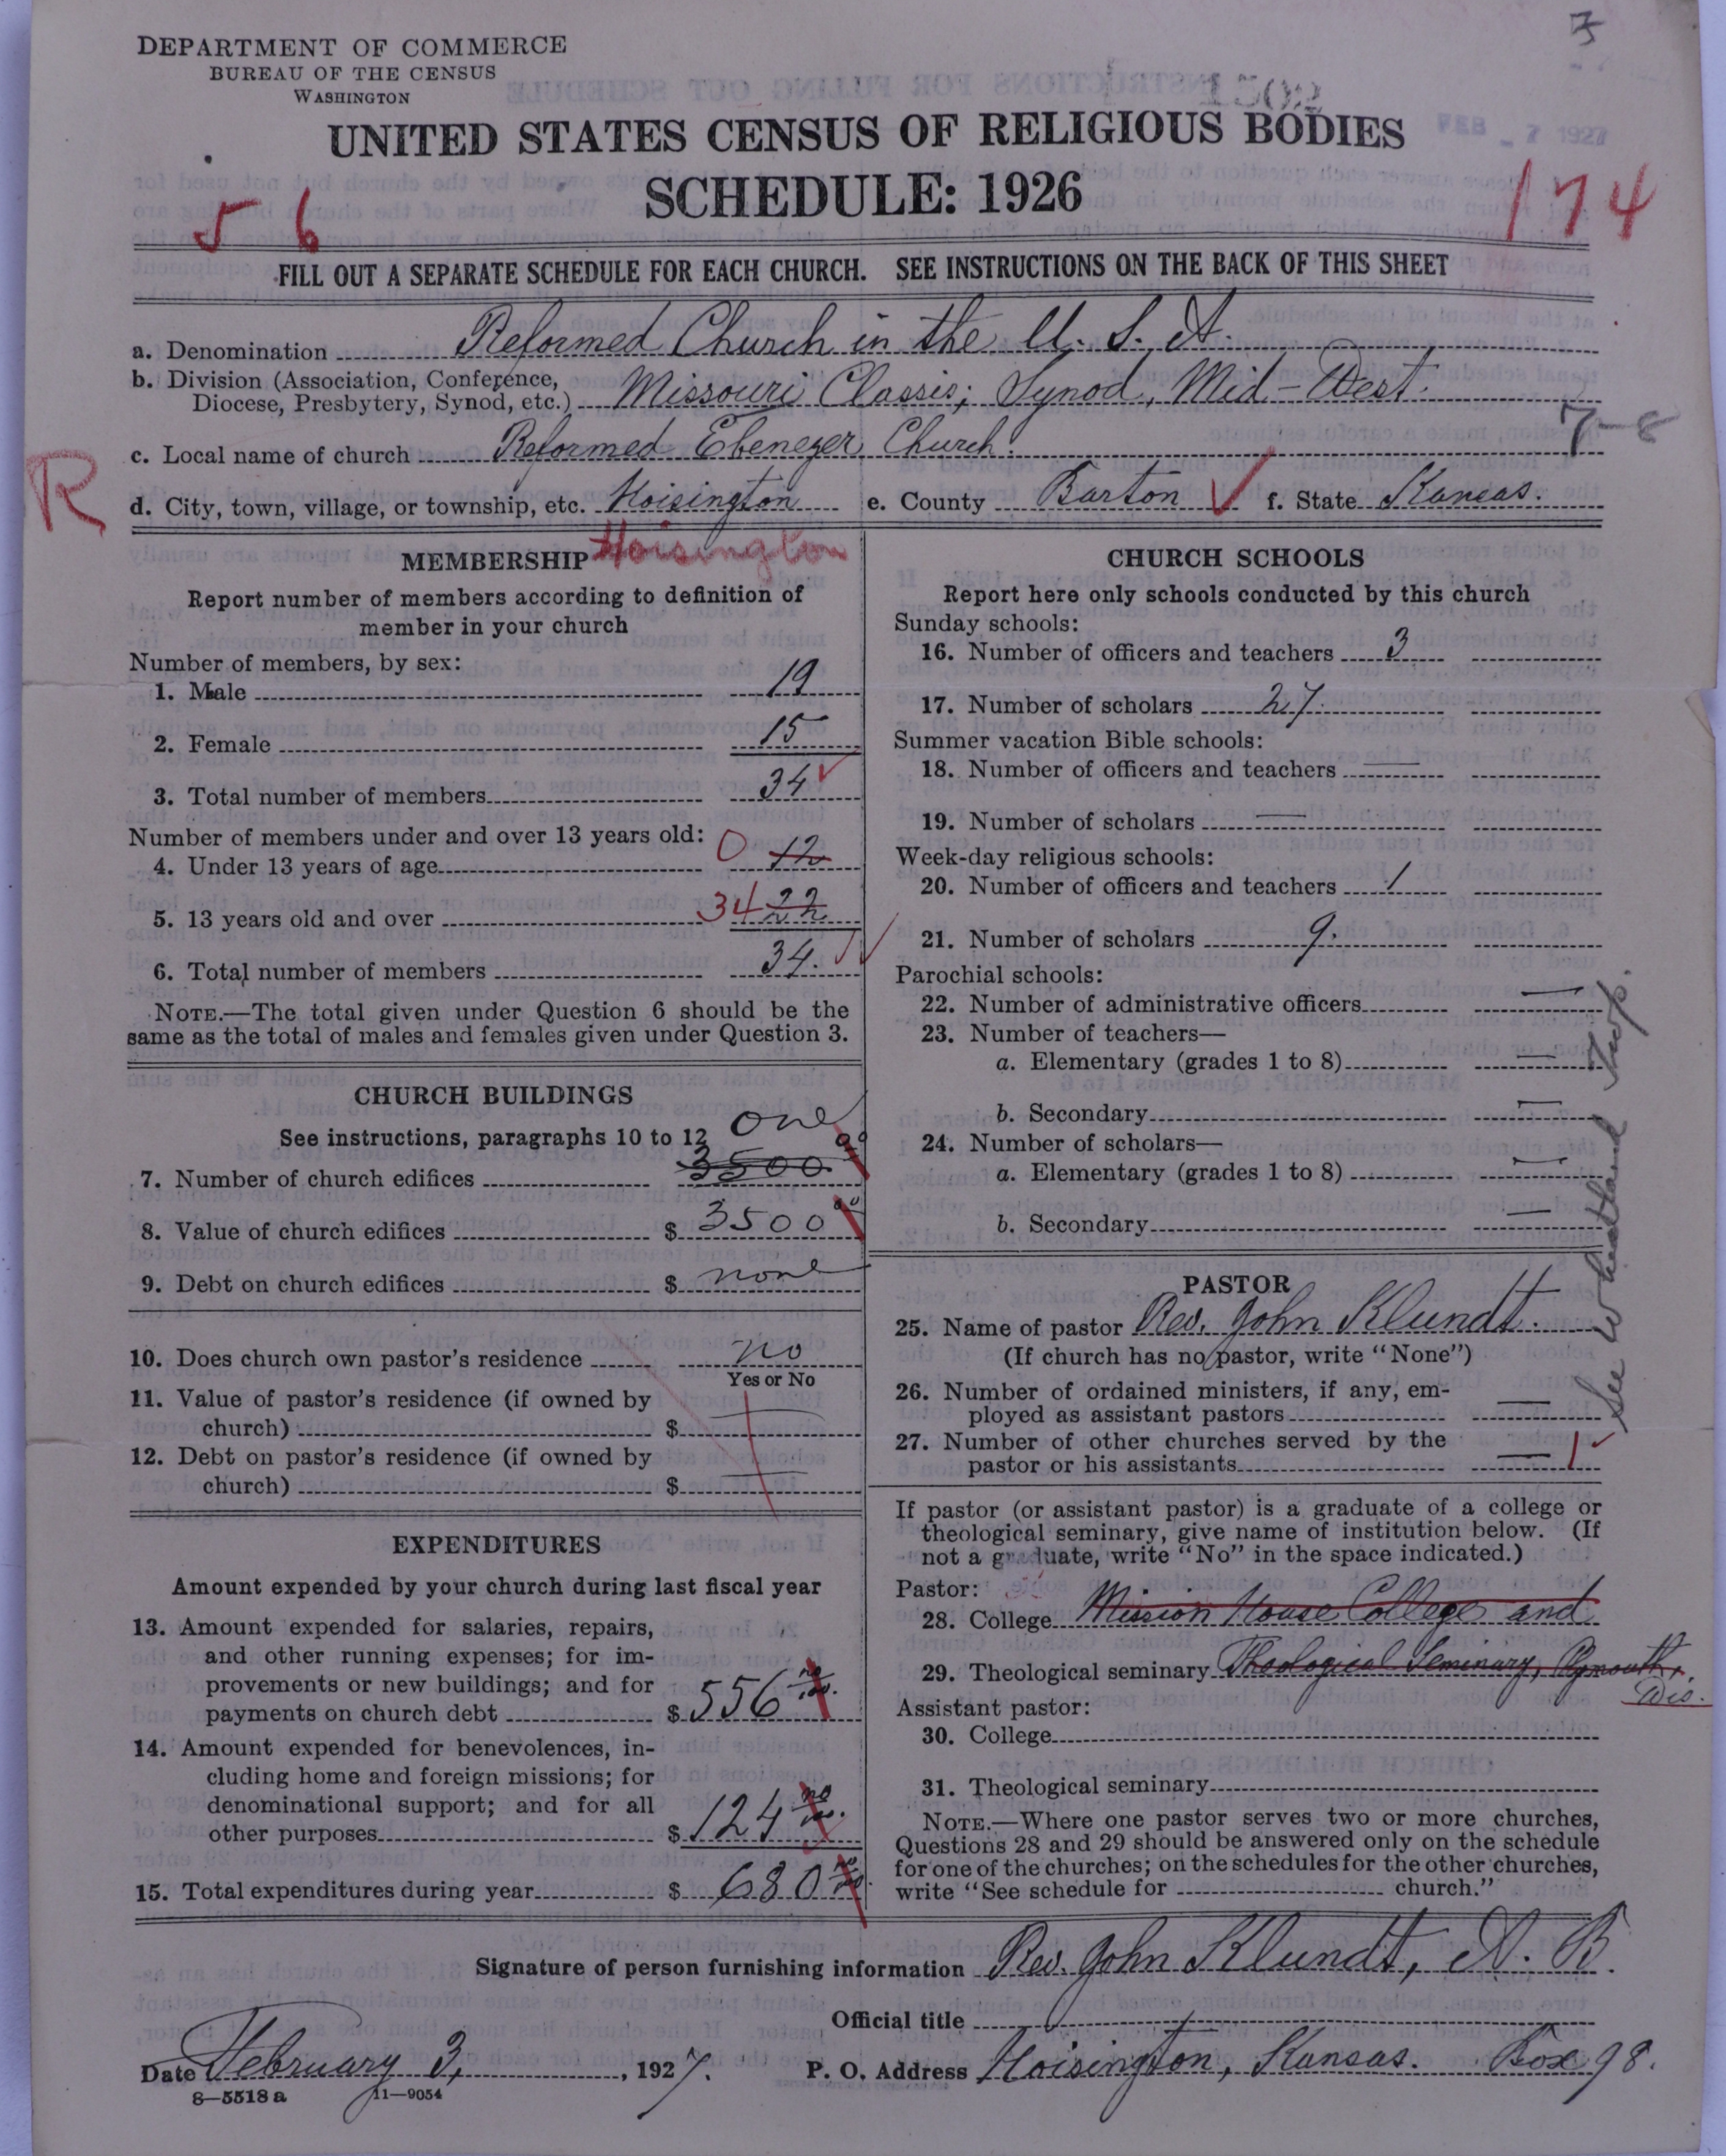 DEPARTMENT OF COMMERCE
BUREAU OF THE CENSUS
WASHINGTON
1502
FEB - 7 1927
UNITED STATES CENSUS OF RELIGIOUS BODIES
SCHEDULE: 1926
56
174
FILL OUT A SEPARATE SCHEDULE FOR EACH CHURCH. SEE INSTRUCTIONS ON THE BACK OF THIS SHEET
a. Denomination Reformed Church in the U. S. A.
b. Division (Association, Conference,
Diocese, Presbytery, Synod, etc.) Missouri Classis; Synod, Mid-West.
7-8
c. Local name of church Reformed Ebenezer Church.
R
d. City, town, village, or township, etc. Hoisington e. County Barton f. State Kansas.
MEMBERSHIP Hoisington
Report number of members according to definition of
member in your church
Number of members, by sex:
1. Male 19
2. Female 15
3. Total number of members 34
Number of members under and over 13 years old:
4. Under 13 years of age 0 12
5. 13 years old and over 34 22
6. Total number of members 34.
NOTE.—The total given under Question 6 should be the
same as the total of males and females given under Question 3.
CHURCH BUILDINGS
See instructions, paragraphs 10 to 12
one
7. Number of church edifices 3500 00
8. Value of church edifices $ 3500 00
9. Debt on church edifices $ none
10. Does church own pastor's residence no
Yes or No
11. Value of pastor's residence (if owned by
church) $
12. Debt on pastor's residence (if owned by
church) $
EXPENDITURES
Amount expended by your church during last fiscal year
13. Amount expended for salaries, repairs,
and other running expenses; for im-
provements or new buildings; and for
payments on church debt $ 556 no/100.
14. Amount expended for benevolences, in-
cluding home and foreign missions; for
denominational support; and for all
other purposes $ 124 no/100.
15. Total expenditures during year $ 680 no/100.
CHURCH SCHOOLS
Report here only schools conducted by this church
Sunday schools:
16. Number of officers and teachers 3
17. Number of scholars 27.
Summer vacation Bible schools:
18. Number of officers and teachers —
19. Number of scholars —
Week-day religious schools:
20. Number of officers and teachers 1
21. Number of scholars 9.
Parochial schools:
22. Number of administrative officers —
23. Number of teachers—
a. Elementary (grades 1 to 8) —
b. Secondary —
24. Number of scholars—
a. Elementary (grades 1 to 8) —
b. Secondary —
See Wheatland Twp.
PASTOR
25. Name of pastor Rev. John Klundt.
(If church has no pastor, write "None")
26. Number of ordained ministers, if any, em-
ployed as assistant pastors —
27. Number of other churches served by the
pastor or his assistants — 1
If pastor (or assistant pastor) is a graduate of a college or
theological seminary, give name of institution below. (If
not a graduate, write "No" in the space indicated.)
Pastor:
28. College Mission House College and
29. Theological seminary Theological Seminary, Plymouth,
Wis.
Assistant pastor:
30. College
31. Theological seminary
NOTE.—Where one pastor serves two or more churches,
Questions 28 and 29 should be answered only on the schedule
for one of the churches; on the schedules for the other churches,
write "See schedule for church."
Signature of person furnishing information Rev. John Klundt, A. B.
Official title
Date February 3, 1927. P. O. Address Hoisington, Kansas. Box 98.
8—5518 a 11—9054